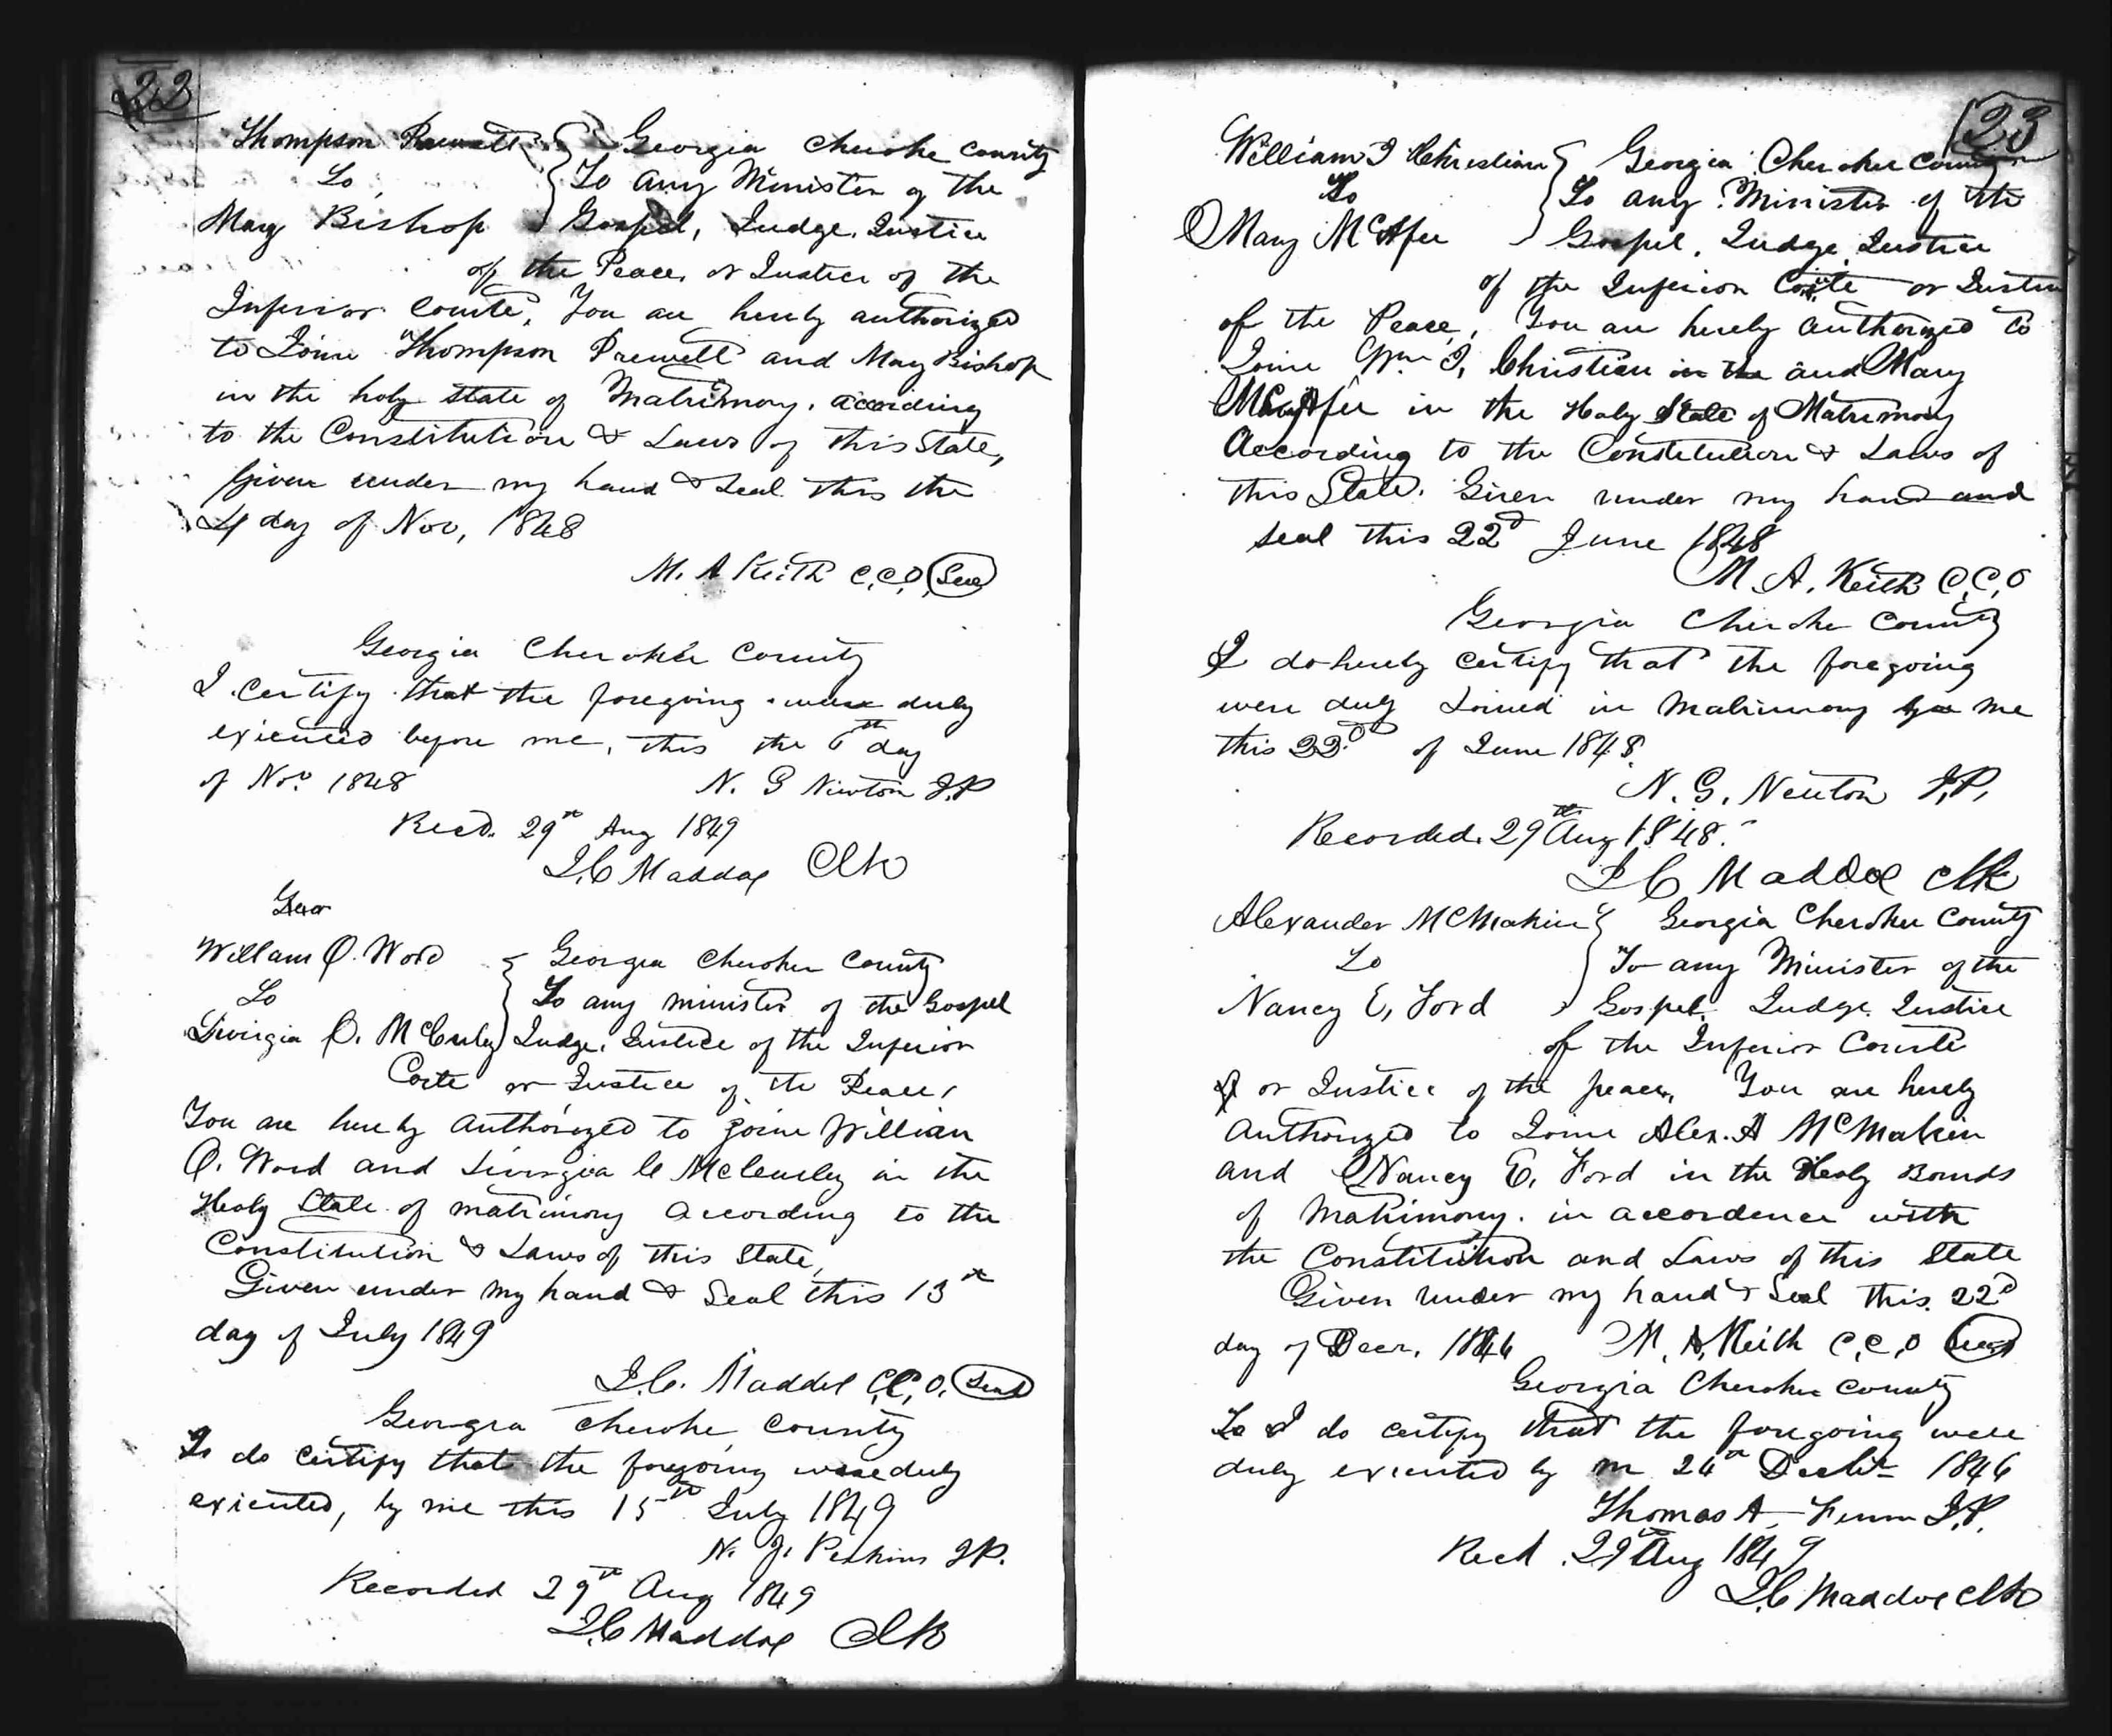 22
Thompson Prewett Georgia Cherokee County
To To any Minister of the
Mary Bishop Gospel, Judge, Justice
of the Peace, or Justice of the
Inferior Courte, You are hereby authorized
to Joine Thompson Prewett and Mary Bishop
in the holy state of Matrimony, according
to the Constitution & Laws of this State,
Given under my hand & seal this the
4 day of Nov, 1848
M. A Keith C,C,O, Seal
Georgia Cherokee County
I certify that the foregoing were duly
executed before me, this the 6th day
of Nov 1848 N. G Newton J.P
Recd. 29th Aug 1849
J.C Maddox Clk
Geor
William O. Word Georgia Cherokee County
To To any minister of the Gospel
Judge, Justice of the Inferior
Corte or Justice of the Peace,
You are hereby authorized to joine William
O. Word and in the
Holy State of matrimony according to the
Constitution & Laws of this State,
Given under my hand & Seal this 13th
day of July 1849
J.C. Maddox C,C, O, Seal
Georgia Cherokee County
I do certify that the foregoing were duly
executed, by me this 15th July 1849
N. J. Perkins JP.
Recorded 29th Aug 1849
J.C Maddox Clk
23
William J Christian Georgia Cherokee County
To To any Minister of the
Mary McAfee Gospel, Judge, Justice
of the Inferior Corte or Justice
of the Peace, You are hereby authorized to
Joine Wm J, Christian in the and Mary
McAfee in the Holy State of Matrimony
According to the Constitution & Laws of
this State. Given under my hand and
seal this 22d June 1848
M. A. Keith C,C,O
Georgia Cherokee County
I do hereby certify that the foregoing
were duly Joined in Matrimony by me
this 22d of June 1848.
N. G. Newton J,P,
Recorded. 29th Aug 1848.
J C Maddox Clk
Alexander McMakin Georgia Cherokee County
To To any Minister of the
Nancy E, Ford Gospel Judge. Justice
of the Inferior Courte
or Justice of the peace, You are hereby
Authorized to Joine Alex. A McMakin
and Nancy E. Ford in the Holy Bonds
of Matrimony. in accordence with
the Constitution and Laws of this State
Given under my hand & Seal this. 22d
day of Decr. 1846 M. A, Keith C,C,O Seal
Georgia Cherokee County
I do certify that the foregoing were
duly executed by m 24th 1846
Thomas A J.P.
Recd. 29th Aug 1849
J.C Maddox Clk